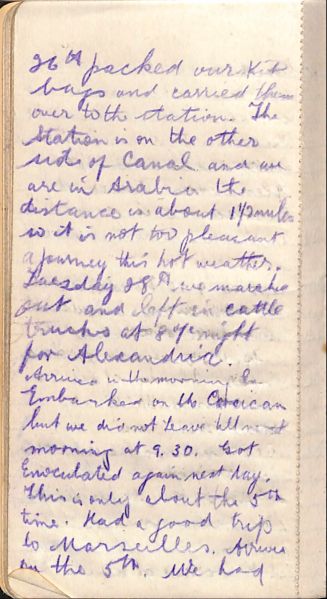 26th packed our Kit
bags and carried them
over to the station. The
station is on the other
side of Canal and we
are in Arabia the
distance is about 1½ miles
so it is not too pleasant
a journey this hot weather.
Tuesday 28th we marched
out and left in cattle
trucks at 8 night
for Alexandria.
Arrived in the morning
Embarked on the
but we did not leave till next
morning at 9.30. Got
Enoculated again next day.
This is only about the 5th
time. Had a good trip
to Marseilles. Arrive
on the 5th. We had